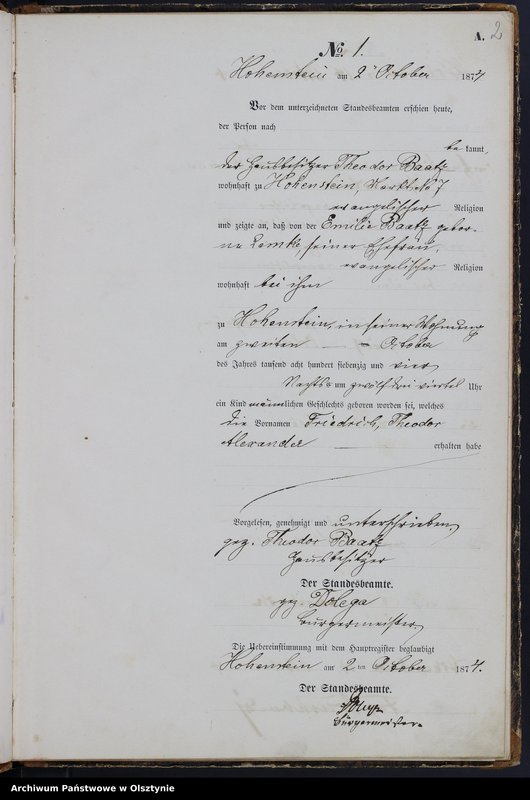 A. 2
No. 1.
Hohenstein am 2ten October 1874
Vor dem unterzeichneten Standesbeamten erschien heute,
der Person nach
be kannt,
der Hausbesitzer Theodor Baatz
wohnhaft zu Hohenstein, Markt No 7
evangelischer Religion
und zeigte an, daß von der Emilie Baatz gebor-
ne Lemke, seiner Ehefrau,
evangelischer Religion
wohnhaft bei ihm
zu Hohenstein, in seiner Wohnung
am zweiten October
des Jahres tausend acht hundert siebenzig und vier
Nachts um zwölf drei viertel Uhr
ein Kind männlichen Geschlechts geboren worden sei, welches
die Vornamen Friedrich, Theodor
Alexander erhalten habe
Vorgelesen, genehmigt und unterschrieben
gez. Theodor Baatz
Hausbesitzer
Der Standesbeamte.
gez. Dolega
Bürgermeister
Die Uebereinstimmung mit dem Hauptregister beglaubigt
Hohenstein am 2 ten October 1874.
Der Standesbeamte.
Bürgermeister
Archiwum Państwowe w Olsztynie